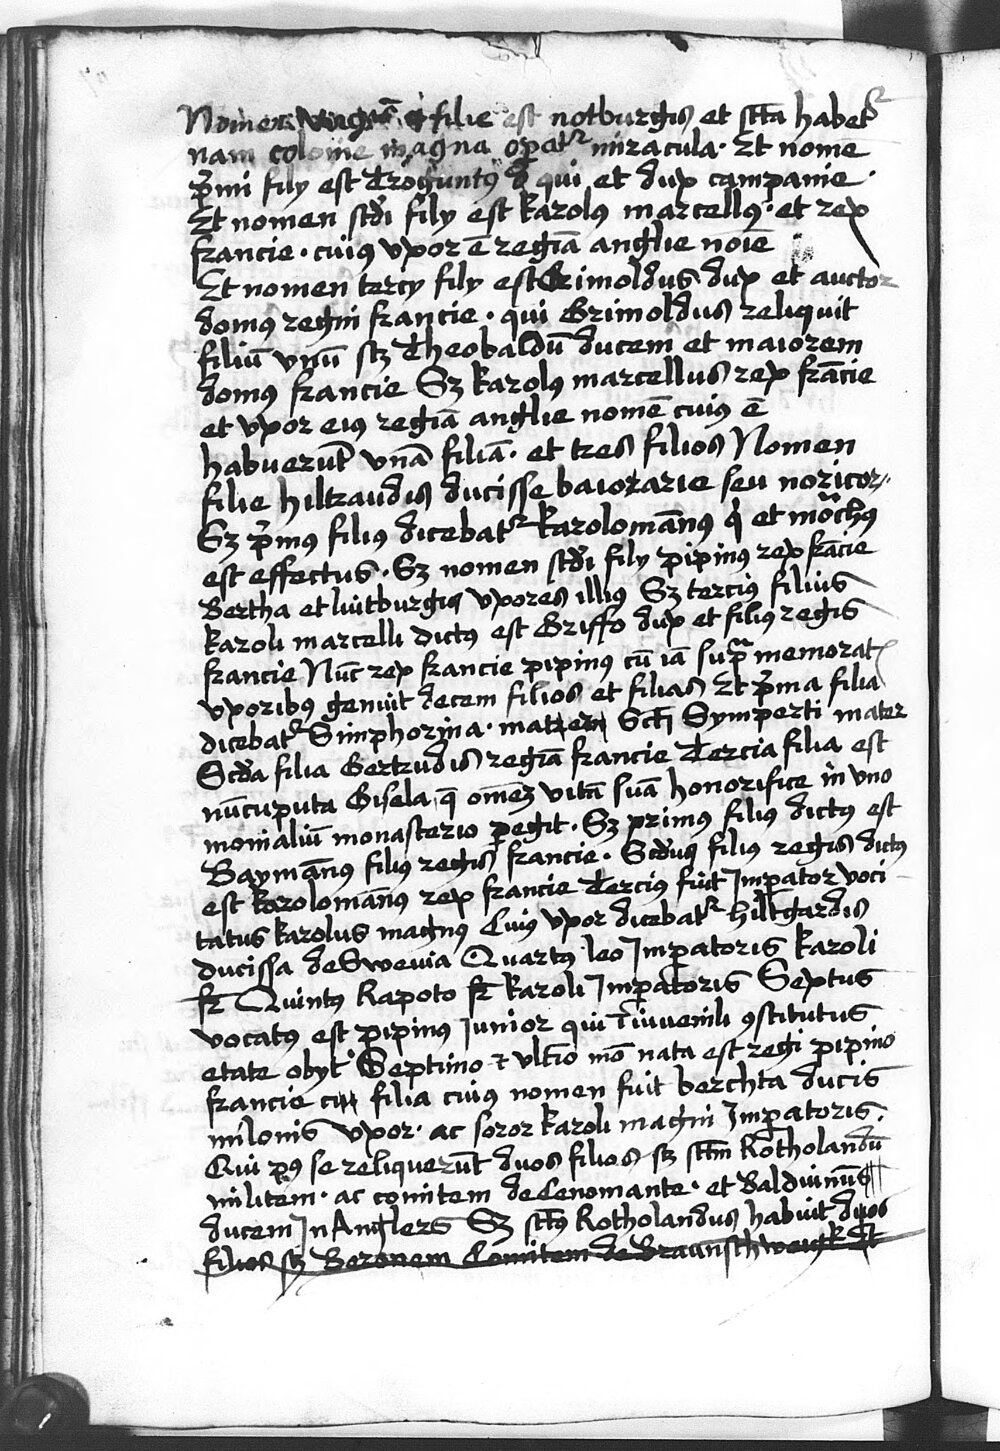 Nomen filie est notburgis et scta habet᷑
nam colonie magna opat᷑ miracula. Et nomē
pͥmi filij est Trogūntꝰ qui et dux campanie.
Et nomen scdi filij est karolꝰ marcellꝰ. et rex
francie. cuiꝰ vxor ē regīa anglie noīe
Et nomen tercij filij est Grimoldus dux et auctor
domꝰ regni francie. qui Grimoldus reliquit
filiū vnū sꝫ Theobaldū ducem et maiorem
domꝰ francie Sꝫ karolꝰ marcellus rex frācie
et vxor eiꝰ regīa anglie nomē cuiꝰ ē
habuerūt vnā filiā. et tres filios Nomen
filie hiltraudis ducisse baiorarie seu noricor
Sꝫ pͥmꝰ filiꝰ dicebat᷑ karolomānus qͥ et mōchꝰ
est effectus. Sꝫ nomen scdi filij pipinꝰ rex frācie
Bertha et luitburgis vxores illiꝰ Sꝫ terciꝰ filius
karoli marcelli dictꝰ est Griffo dux et filiꝰ regis
francie Nūc rex francie pipinꝰ cū iā supᷓ memorat
vxoribꝰ genuit decem filios et filias Et pͥma filia
dicebat᷑ Simphorina. Scti Symperti mater
Scda filia Gertrudis regīa francie Tercia filia est
nūcuputa Gisela q̄ omēꝫ vitā suā honorifice in vno
monialiū monasterio ꝑegit. Sꝫ primꝰ filiꝰ dictꝰ est
Baymānꝰ filiꝰ regis francie. Scdus filiꝰ regis dictꝰ
est karolomānꝰ rex francie Terciꝰ fuit Imꝑator voci
tatus karolus magnꝰ Cuiꝰ vxor dicebat᷑ hiltgardis
ducissa de Swevia Quartꝰ leo Imꝑatoris karoli
fr̄ Quintꝰ Rapoto fr̄ karoli Imꝑatoris Septus
vocatꝰ est pipinꝰ Iunior qui ī iuvenili ꝯstitutus
etate obijt Septimo ⁊ vltīo mō nata est regi pipino
francie filia cuiꝰ nomen fuit berchta ducis
milonis vxor. ac soror karoli magni Imꝑatoris.
Qui pꝰ se reliquerūt duos filios sꝫ sctm Rotholandū
militem. ac comitem de Cenomante. et Baldwinus
ducem In Anglers Sꝫ sctꝰ Rotholandus habuit duos
filios sꝫ Beronem Comitem de Braunschweigk Et